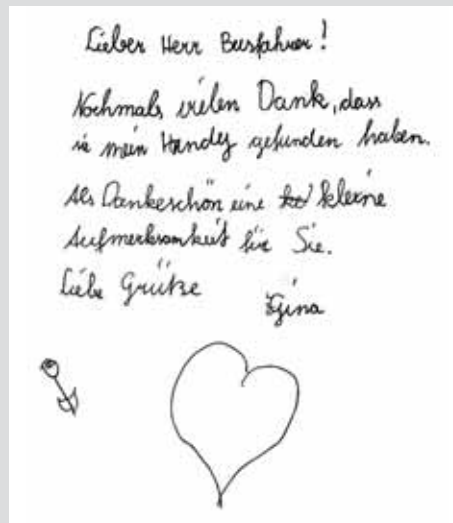 Lieber Herr Busfahrer!
Nochmals vielen Dank, dass
sie mein Handy gefunden haben.
Als Dankeschön eine kleine
Aufmerksamkeit für Sie.
Liebe Grüße
Gina